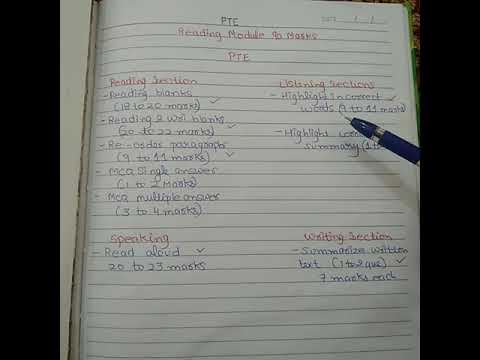 PTE
Reading Module 90 Marks
PTE
Reading Section
- Reading blanks
(18 to 20 marks)
- Reading & Wri blanks
(20 to 22 marks)
- Re-order paragraphs
(9 to 11 marks)
- MCQ Single answer
(1 to 2 Marks)
- MCQ multiple answer
(3 to 4 marks)
Listening Sections
- Highlight Incorrect
words (9 to 11 marks)
- Highlight
summary (1 to
Speaking
- Read aloud
20 to 23 marks
Writing Section
- Summarize written
text (1 to 2 que)
7 marks each